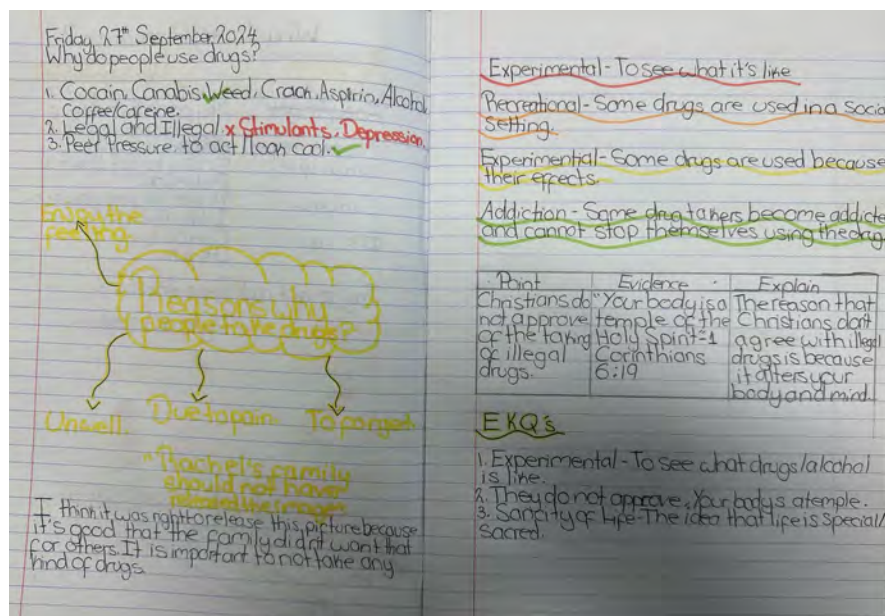 Friday 27th September 2024
Why do people use drugs?
1. Cocain, Canabis, Weed, Crack, Aspirin, Alcohol,
Coffee/Careine.
2. Legal and Illegal. x Stimulants, Depression.
3. Peer Pressure, to act/look cool. ✓
Enjoy the
feeling.
Reasons why
people take drugs?
Unwell.
Due to pain.
To forget.
"Rachel's family
should not have
released the images
I think it was right to release this picture because
it's good that the family didn't want that
for others. It is important to not take any
kind of drugs.
Experimental - To see what it's like
Recreational - Some drugs are used in a social
setting.
Experimental - Some drugs are used because
their effects.
Addiction - Some drug takers become addicte
and cannot stop themselves using the drug
Point
Christians do
not approve
of the taking
of illegal
drugs.
Evidence
"Your body is a
temple of the
Holy Spirit" 1
Corinthians
6:19
Explain
The reason that
Christians don't
agree with illegal
drugs is because
it alters your
body and mind.
EKQ's
1. Experimental - To see what drugs/alcohol
is like.
2. They do not approve, Your body is a temple.
3. Sancity of Life - The idea that life is special/
Sacred.